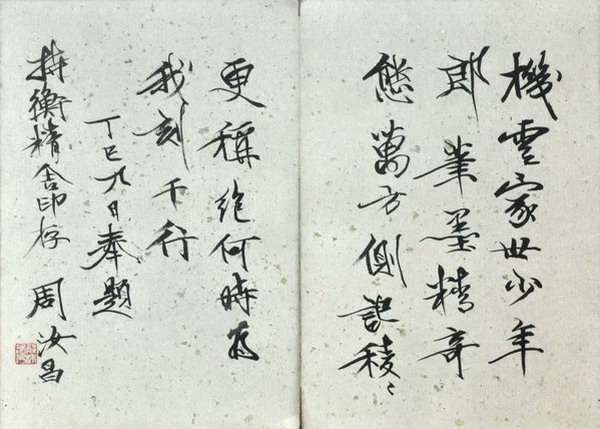 機雲家世少年
郎筆墨精奇
態萬方側認稜〻
更稱絶何時為
我刻千行
丁巳九日奉題
持衡精舍印存
周汝昌